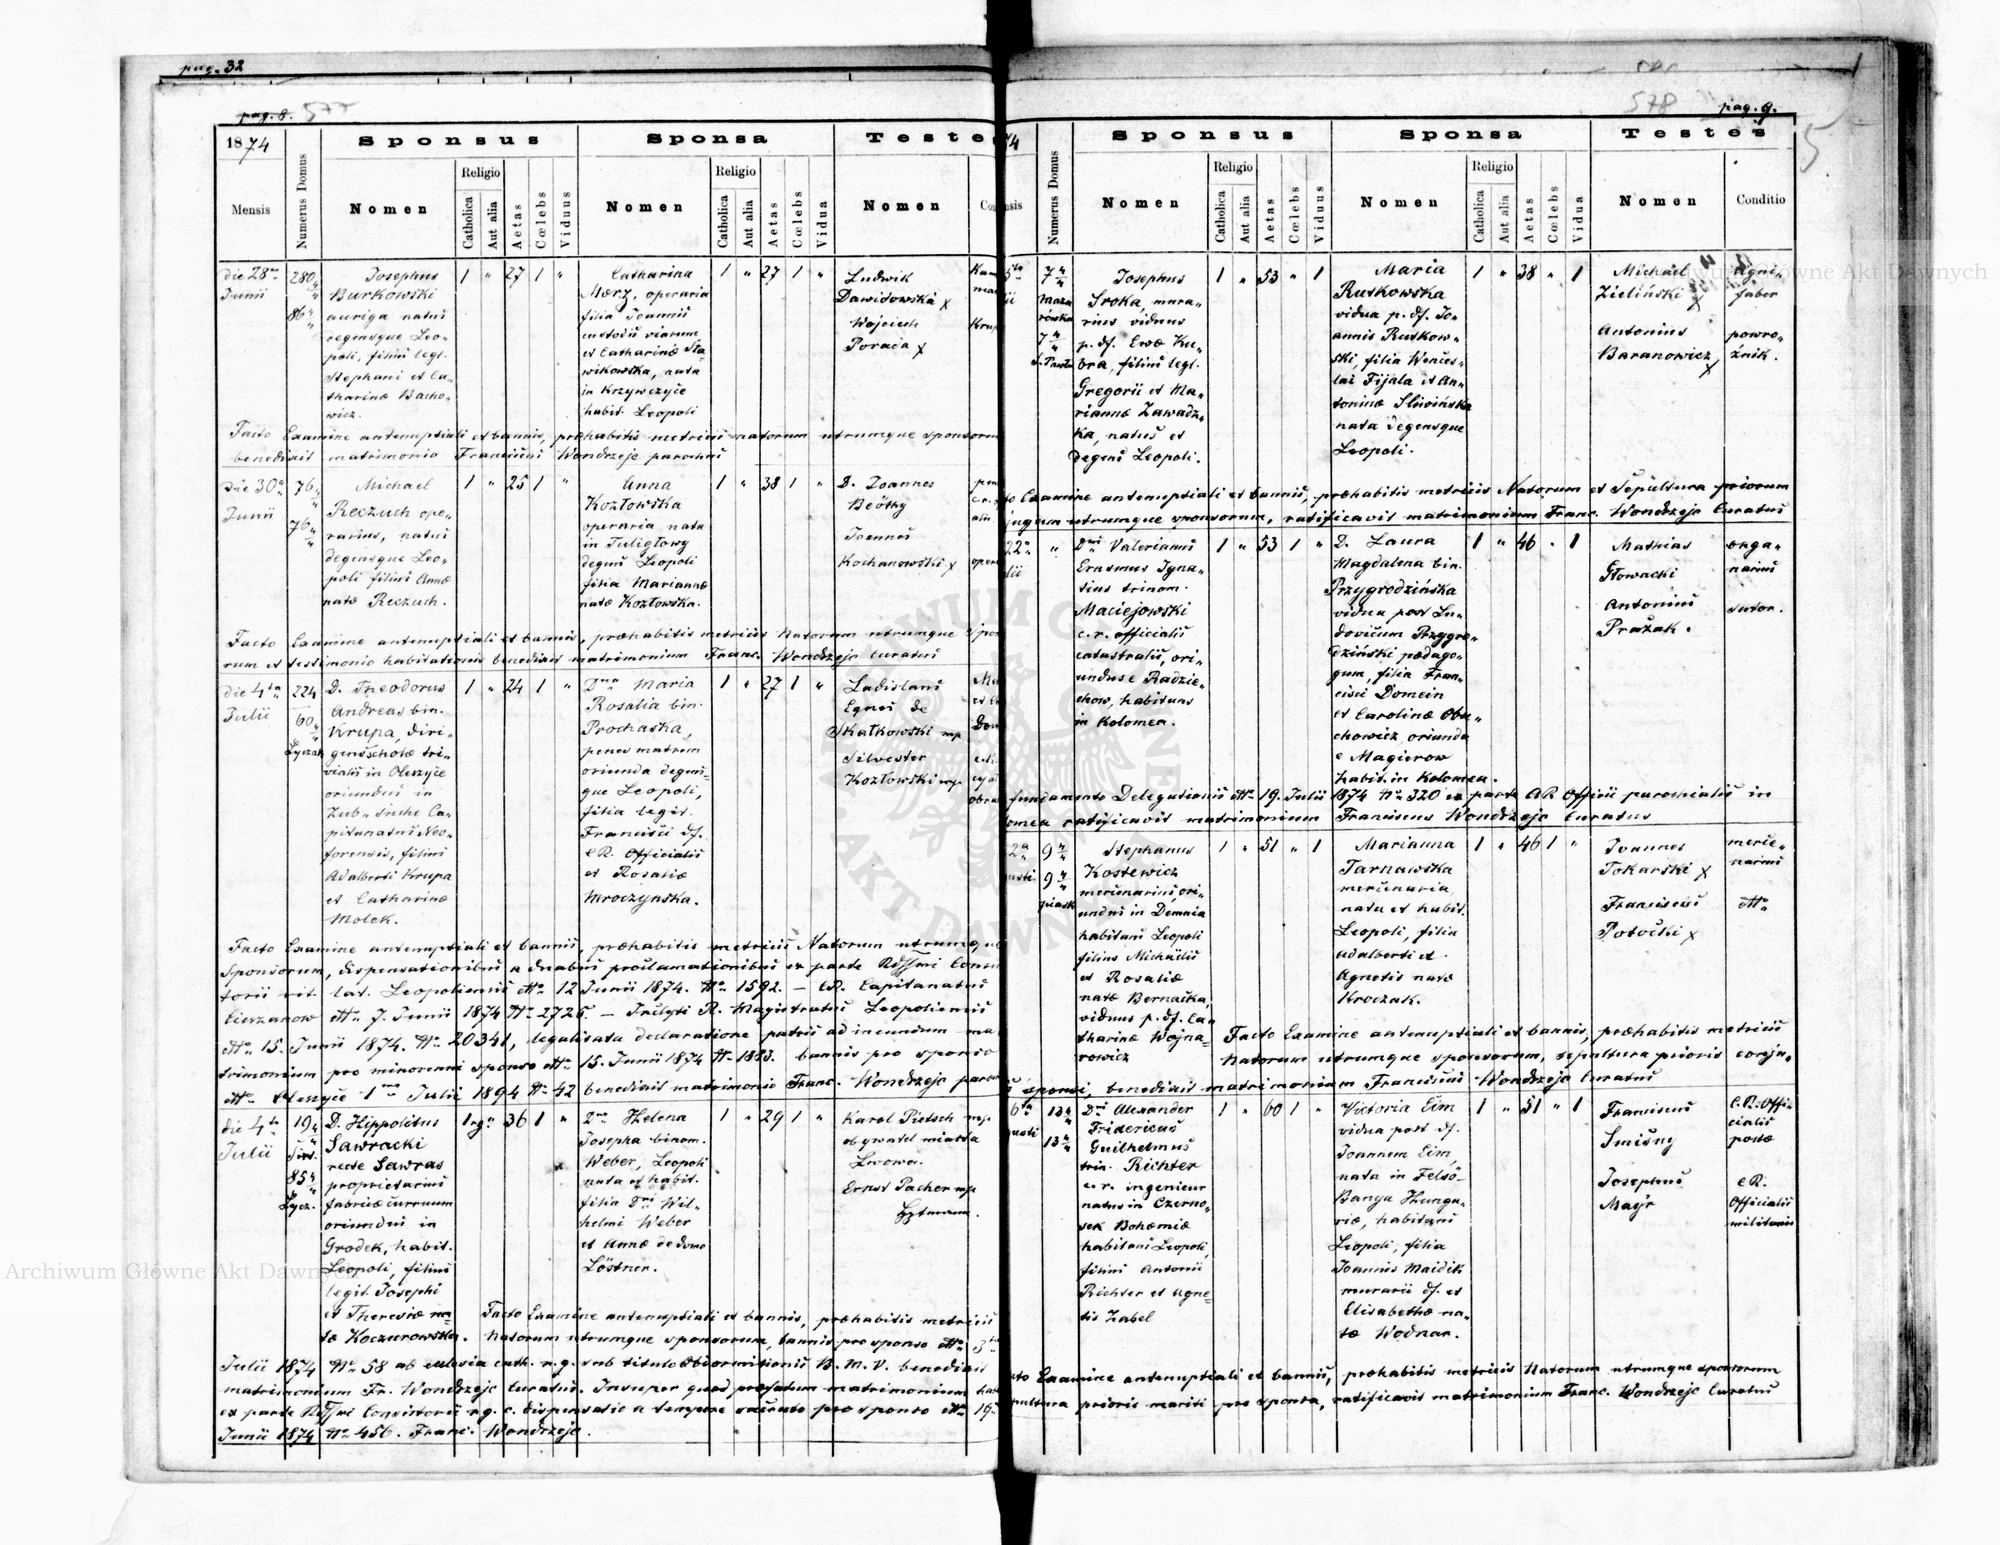 pag. 32
pag. 8. 577
1874
Sponsus
Sponsa
Testes
Mensis
Numerus Domus
Nomen
Religio
Catholica
Aut alia
Aetas
Cœlebs
Viduus
Nomen
Religio
Catholica
Aut alia
Aetas
Cœlebs
Vidua
Nomen
Die 28va
Junii
280
86
Josephus
Burkowski
auriga natus
degensque Leo-
poli, filius legt.
Stephani et Ca-
tharinæ Bacho-
wicz.
1 " 27 1 "
Catharina
Merz, operaria
filia Joannis
custodis viarum
et Catharinæ Sta-
wikowska, nata
in Krzywczyce
habit. Leopoli
1 " 27 1 "
Ludwik
Dawidowski x
Wojciech
Porada x
Facto Examine antenuptiali et bannis, præhabitis metricis natorum utrumque sponsorum
benedixit matrimonio Franciscus Wondrzejc parochus
Die 30a
Junii
76
76
Michael
Reczuch ope-
rarius, natus
degensque Leo-
poli filius Annæ
natæ Reczuch.
1 " 25 1 "
Anna
Kozłowska
operaria nata
in Tuligłowy
degens Leopoli
filia Mariannæ
natæ Kozłowska.
1 " 38 1 "
D. Joannes
Beöthy
Joannes
Kochanowski x
Facto Examine antenuptiali et bannis, præhabitis metricis Natorum utrumque Spon
rum et testimonio habitationis benedixit matrimonium Franc. Wondrzejc Curatus
Die 4ta
Julii
224
60
Łyczak
D. Theodorus
Andreas bin.
Krupa, diri-
gens scholæ tri-
vialis in Oleszyce
oriundus in
Capitanatus Neo-
forensis, filius
Adalberti Krupa
et Catharinæ
Molek.
1 " 24 1 "
Dna Maria
Rosalia bin.
Prochaska,
penes matrem
oriunda degens-
que Leopoli,
filia legit.
Francisci df.
CR. Officialis
et Rosaliæ
Mroczynska.
1 " 27 1 "
Ladislaus
Egnes de
Skałkowski mp
Silvester
Kozłowski mp.
Facto Examine antenuptiali et bannis, præhabitis metricis Natorum utrumque
Sponsorum, dispensationibus a duabus proclamationibus ex parte Rdssmi Consis
torii rit. lat. Leopoliensis dtto 12 Junii 1874. No 1592. — CR. Capitanatus
Cieszanow dtto 7. Junii 1874 No 2725. — Inclyti R. Magistratus Leopoliensis
dtto 15. Junii 1874. No 20341, legalisata declaratione patris ad ineundum ma
trimonium pro minorenni sponso dtto 15. Junii 1874 No 1823. bannis pro sponso
dtto Oleszyce 1ma Julii 1894 No 42 benedixit matrimonio Franc. Wondrzejc paroch
Die 4ta
Julii
19
85
Łycz.
D. Hippolitus
Sawracki
recte Sawras
proprietarius
fabricæ curruum
oriundus in
Grodek, habit.
Leopoli, filius
legit. Josephi
et Theresiæ na-
tæ Koczurowska.
1 rg 36 1 "
Dna Helena
Josepha binom.
Weber, Leopoli
nata et habit.
filia Dni Wil-
helmi Weber
et Annæ de domo
Löstner.
1 " 29 1 "
Karol Pietsch mp.
obywatel miasta
Lwowa.
Ernst Pacher mp.
Facto Examine antenuptiali et bannis, præhabitis metricis
Natorum utrumque sponsorum, bannis pro sponso dtto 3ta
Julii 1874 No 58 ab ecclesia cath. r. g. sub titulo Obdormitionis B. M. V. benedixit
matrimonium Fr. Wondrzejc Curatus. Insuper quod præfatum matrimonium hab
ex parte Rdssmi Consistorii r. g. c. dispensatio a tempore sacrato pro sponso dtto 19
Junii 1874 No 456. Franc. Wondrzejc.
578
pag. 9.
5
Sponsus
Sponsa
Testes
Numerus Domus
Nomen
Religio
Catholica
Aut alia
Aetas
Cœlebs
Viduus
Nomen
Religio
Catholica
Aut alia
Aetas
Cœlebs
Vidua
Nomen
Conditio
5ta
7
7
Josephus
Sroka, mura-
rius viduus
p. df. Ewæ Ku-
bra, filius legt.
Gregorii et Ma-
riannæ Zawadz-
ka, natus et
degens Leopoli.
1 " 53 " 1
Maria
Rutkowska
vidua p. df. Jo-
annis Rutkow-
ski, filia Wences-
lai Fijala et An-
toninæ Sliwińska
nata degensque
Leopoli.
1 " 38 " 1
Michael
Zieliński x
Antonius
Baranowicz x
ligni-
faber
powro-
źnik.
Examine antenuptiali et bannis, præhabitis metricis Natorum et Sepultura priorum
jugum utrumque sponsorum, ratificavit matrimonium Franc. Wondrzejc Curatus
22a
"
Dni Valerianus
Erasmus Igna-
tius trinom.
Maciejowski
c. r. officialis
catastralis, ori-
undus e Radzie-
chow, habitans
in Kolomea.
1 " 53 1 "
D. Laura
Magdalena bin.
Przygrodzińska
vidua post Lu-
dovicum Przygro-
dziński pædago-
gum, filia Fran-
cisci Domein
et Carolinæ Obu-
chowicz, oriunda
e Magierow
habit. in Kolomea.
1 " 46 " 1
Mathias
Głowacki
Antonius
Pražak.
orga-
narius
sutor.
fundamento Delegationis dtto 19. Julii 1874 No 320 ex parte AR Officii parochialis in
omea ratificavit matrimonium Franciscus Wondrzejc Curatus
2a
9
9
piask
Stephanus
Kostewicz
mercenarius, ori-
undus in Demnia
habitans Leopoli
filius Michaelis
et Rosaliæ
natæ Bernacka,
viduus p. df. Ca-
tharinæ Wojna-
rowicz
1 " 51 " 1
Marianna
Tarnawska
mercenaria,
nata et habit.
Leopoli, filia
Adalberti et
Agnetis natæ
Kroczak.
1 " 46 1 "
Joannes
Tokarski x
Franciscus
Potocki x
merce-
narius
dtto
Facto Examine antenuptiali et bannis, præhabitis metricis
Natorum utrumque sponsorum, sepultura prioris conju-
sponsi, benedixit matrimonium Franciscus Wondrzejc Curatus
6ta
13
13
Dni Alexander
Fridericus
Guilhelmus
trin. Richter
c. r. ingenieur
natus in Czerno-
sek Bohemiæ
habitans Leopoli,
filius Antonii
Richter et Agne-
tis Zabel
1 " 60 1 "
Victoria Eim
vidua post df.
Joannem Eim,
nata in Felsö-
Banya Hunga-
riæ, habitans
Leopoli, filia
Joannis Maidik
murarii df. et
Elisabethæ na-
tæ Wodnar.
1 " 51 " 1
Franciscus
Smišny
Josephus
Mayr
C. R. Offi-
cialis
postæ
CR.
Officialis
militaris
Examine antenuptiali et bannis, præhabitis metricis Natorum utrumque sponsorum
pultura prioris mariti pro sponsa, ratificavit matrimonium Franc. Wondrzejc Curatus
Archiwum Główne Akt Dawnych
Archiwum Główne Akt Dawnych